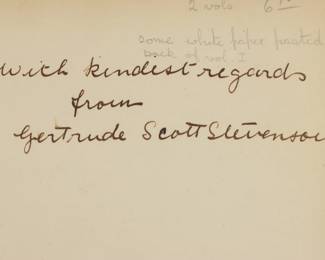 2 vols
some white paper pasted
back of vol I
With kindest regards
from
Gertrude Scott Stevenson